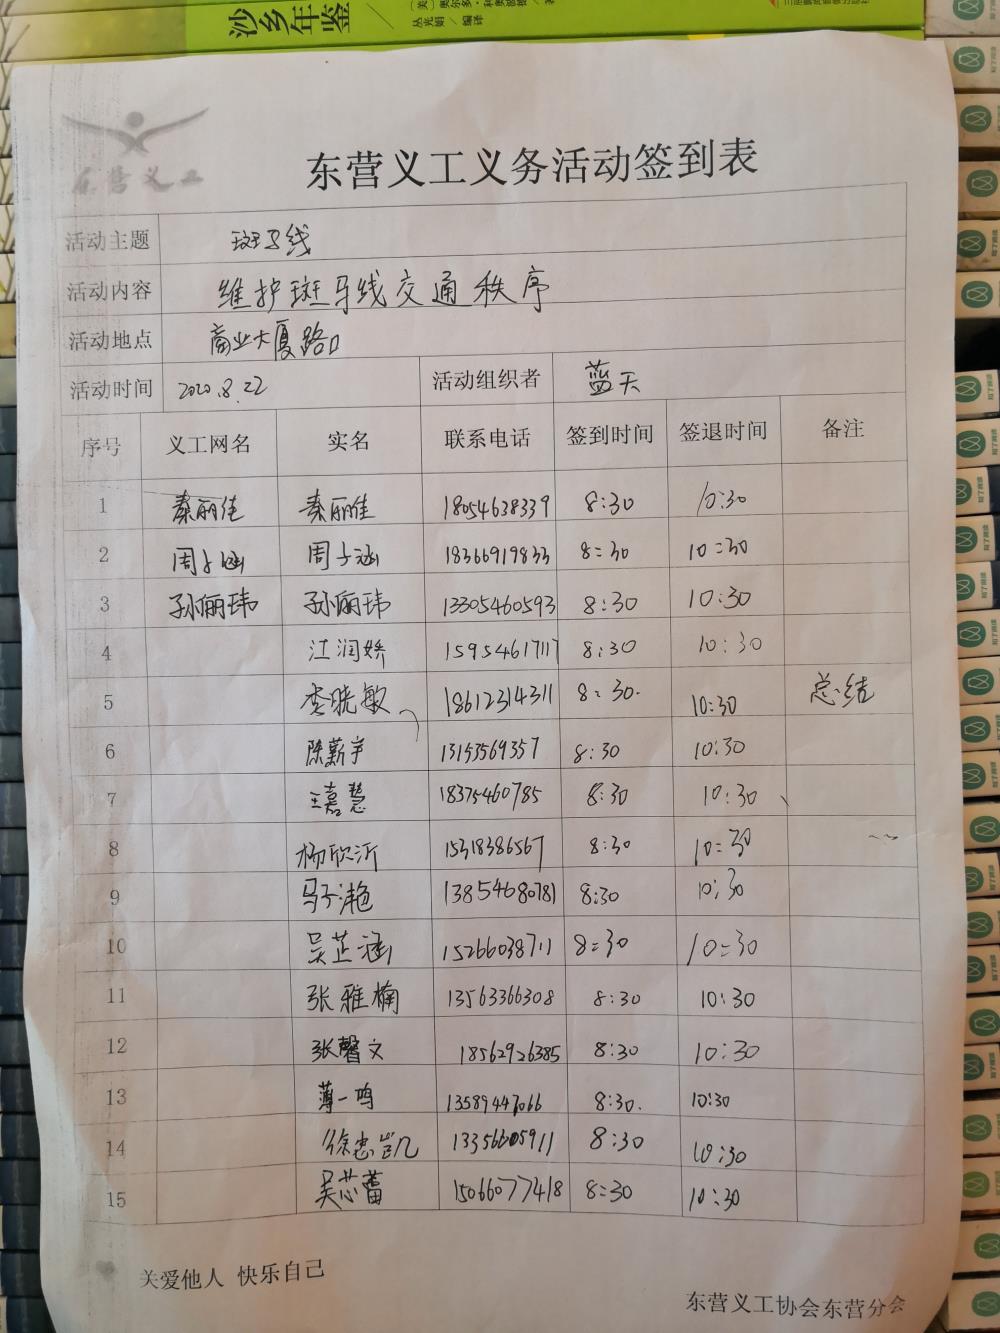 沙乡年鉴
丛光娟／编译
东营义工
东营义工义务活动签到表
活动主题 斑马线
活动内容 维护斑马线交通秩序
活动地点 商业大厦路口
活动时间 2020.8.22 活动组织者 蓝天
序号 义工网名 实名 联系电话 签到时间 签退时间 备注
1 秦丽佳 秦丽佳 18054638339 8:30 10:30
2 周子涵 周子涵 18366919833 8:30 10:30
3 孙俪玮 孙俪玮 13305460593 8:30 10:30
4 江润娇 15954617117 8:30 10:30
5 李晓敏 18612314311 8:30. 10:30 总结
6 陈薪宇 13193569357 8:30 10:30
7 王嘉慧 18375460785 8:30 10:30
8 杨欣沂 15318386567 8:30 10:30
9 马子滟 13854680781 8:30 10:30
10 吴芷涵 15266038711 8:30 10:30
11 张雅楠 13563366308 8:30 10:30
12 张馨文 18562926385 8:30 10:30
13 薄一鸣 13589447066 8:30. 10:30
14 徐忠凯 13356605911 8:30 10:30
15 吴芯蕾 15066077418 8:30 10:30
关爱他人 快乐自己
东营义工协会东营分会